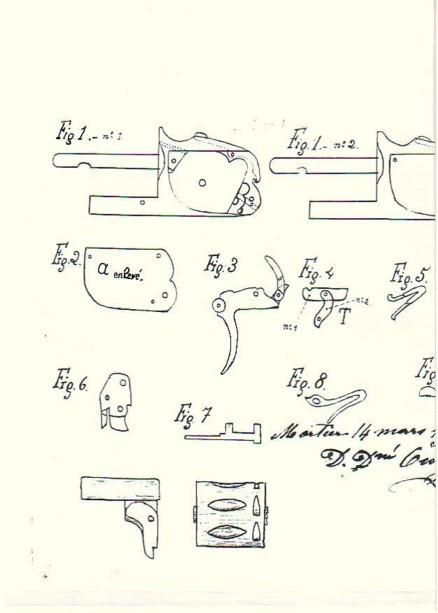 Fig 1.- n° 1.
Fig 1.- n° 2.
Fig. 2.
a enlevé.
Fig. 3
Fig. 4
n° 1
n° 2
T
Fig. 5.
Fig. 6.
Fig 7
Fig. 8
Fig
Mortier 14 mars
D. Dné